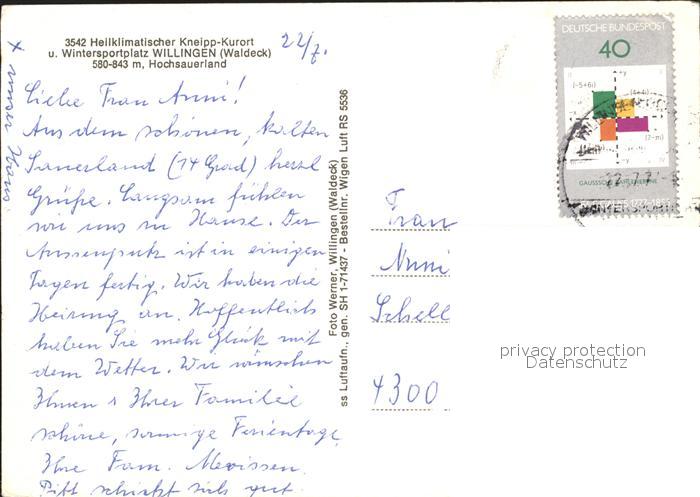 3542 Heilklimatischer Kneipp-Kurort
u. Wintersportplatz WILLINGEN (Waldeck)
580-843 m, Hochsauerland
22/7.
x unser Haus
Liebe Frau Anni!
Aus dem schönen, kalten
Sauerland (14 Grad) herzl
Grüße. Langsam fühlen
wir uns zu Hause. Der
Aussenputz ist in einigen
Tagen fertig. Wir haben die
Heizung an. Hoffentlich
haben Sie mehr Glück mit
dem Wetter. Wir wünschen
Ihnen + Ihrer Familie
schöne, sonnige Ferientage
Ihre Fam. Mevissen.
Pitt schickt sich gut.
Foto Werner, Willingen (Waldeck)
ss Luftaufn., gen. SH 1-71437 - Bestellnr. Wigen Luft RS 5536
Frau
Anni
Schell
4300
DEUTSCHE BUNDESPOST
40
(-5+6i)
(4+4i)
+y
GAUSSSCHE ZAHLENEBENE
1777-1855
privacy protection
Datenschutz